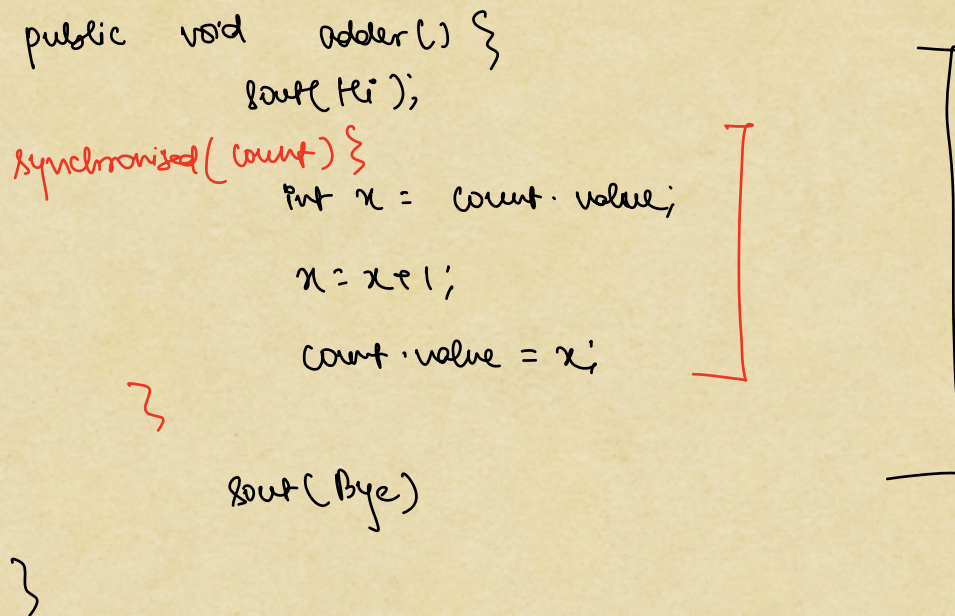 public void adder() {
sout(Hi);
synchronised(count) {
int x = count.value;
x = x+1;
count.value = x;
}
sout(Bye)
}